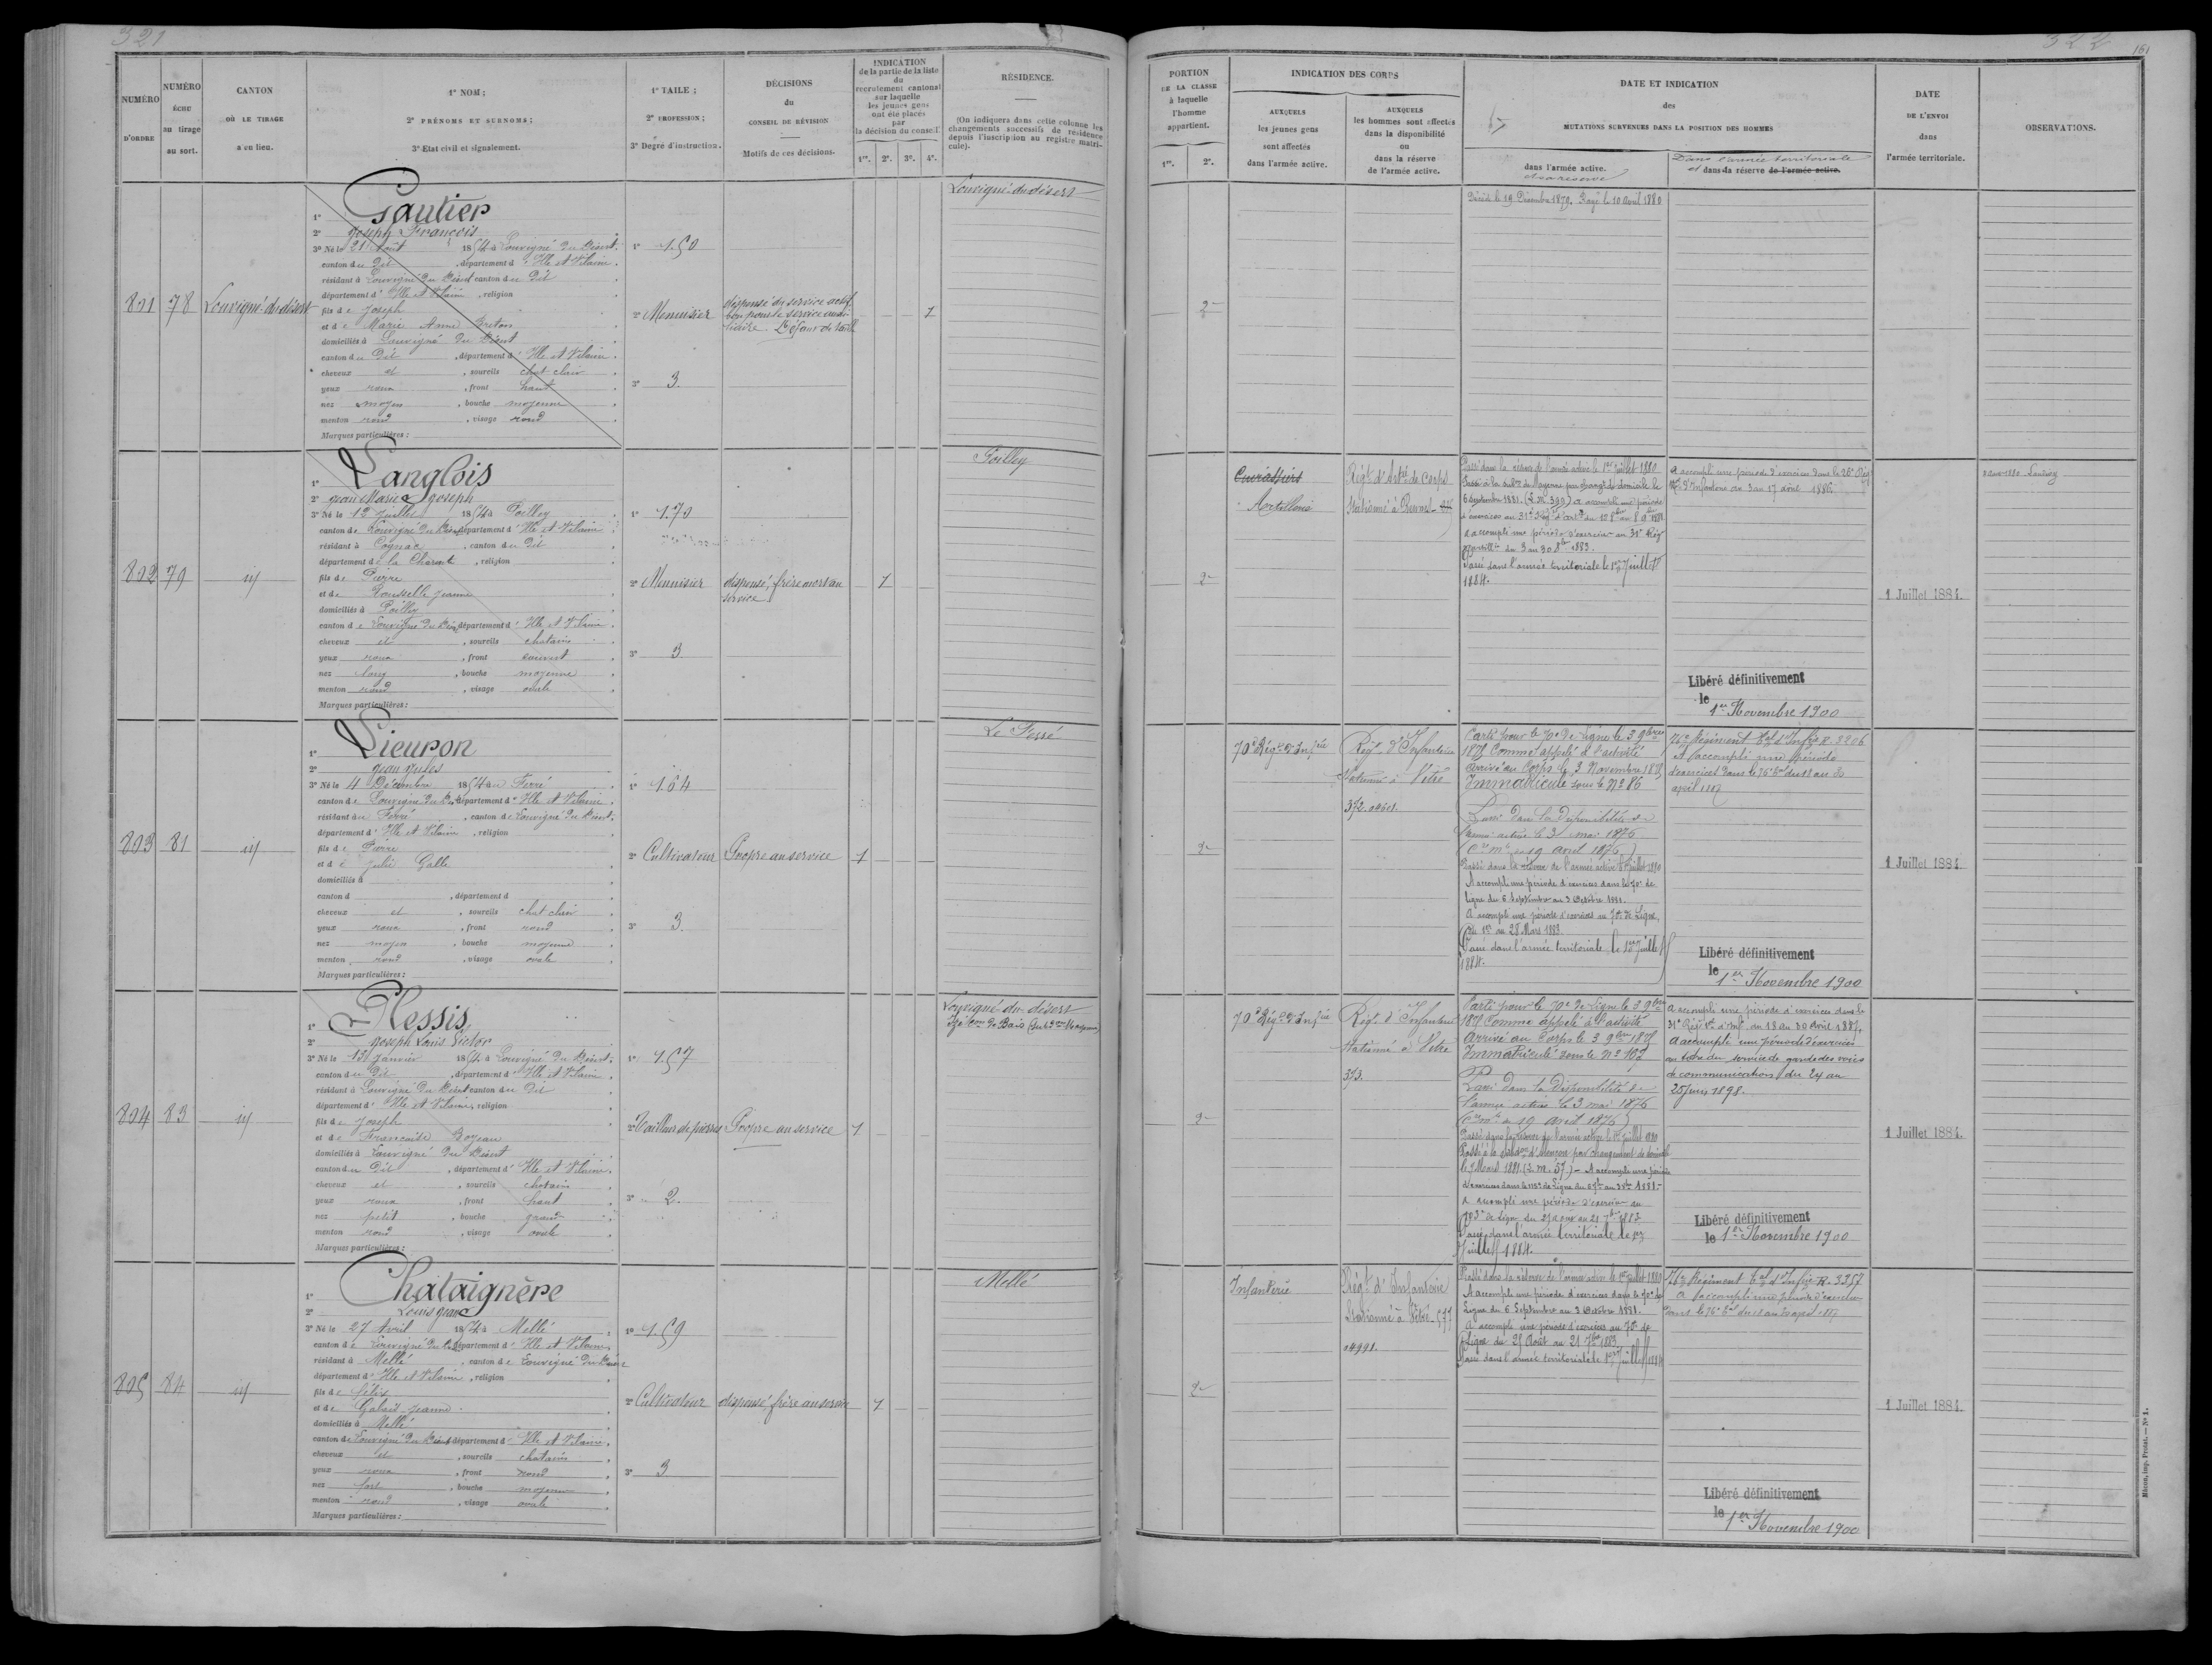 321
NUMÉRO
D'ORDRE
NUMÉRO
ÉCHU
au tirage
au sort.
CANTON
OÙ LE TIRAGE
a eu lieu.
1° NOM ;
2° PRÉNOMS ET SURNOMS ;
3° Etat civil et signalement.
1° TAILE ;
2° PROFESSION ;
3° Degré d'instruction.
DÉCISIONS
du
CONSEIL DE RÉVISION
Motifs de ces décisions.
INDICATION
de la partie de la liste
du
recrutement cantonal
sur laquelle
les jeunes gens
ont été placés
par
la décision du conseil.
1re. 2e. 3e. 4e.
RÉSIDENCE.
(On indiquera dans cette colonne les
changements successifs de résidence
depuis l'inscription au registre matri-
cule).
801
78
Louvigné-du-désert
1° Gautier
2° Joseph François
3° Né le 21 Août 1854 à Louvigné du Désert
canton du Dit, département d'Ille et Vilaine.
résidant à Louvigné du Désert canton du Dit
département d'Ille et Vilaine, religion
fils de Joseph
et de Marie Anne Breton
domiciliés à Louvigné du Désert
canton du Dit, département d'Ille et Vilaine.
cheveux et, sourcils chat-clair
yeux roux, front haut
nez moyen, bouche moyenne
menton rond, visage rond
Marques particulières :
1° 1.50
2° Menuisier
3° 3.
dispensé du service actif
bon pour le service auxi-
liaire. Défaut de taille
1
Louvigné-du-désert
802
79
id
1° Langlois
2° Jean Marie Joseph
3° Né le 12 Juillet 1854 à Poilley
canton de Louvigné du Désert département d'Ille et Vilaine
résidant à Cognac, canton du Dit
département de la Charente, religion
fils de Pierre
et de Rousselle Jeanne
domiciliés à Poilley
canton de Louvigné du Désert département d'Ille et Vilaine.
cheveux et, sourcils chatains
yeux roux, front couvert
nez long, bouche moyenne
menton rond, visage ovale
Marques particulières :
1° 1.70
2° Menuisier
3° 3
dispensé, frère mort au
service
1
Poilley
803
81
id
1° Lieuron
2° Jean Jules
3° Né le 4 Décembre 1854 au Ferré
canton de Louvigné du Dt, département d'Ille et Vilaine.
résidant au Ferré, canton de Louvigné du Désert.
département d'Ille et Vilaine, religion
fils de Pierre
et de Julie Galle
domiciliés à
canton d , département d
cheveux et, sourcils chat-clair
yeux roux, front rond
nez moyen, bouche moyenne
menton rond, visage ovale
Marques particulières :
1° 1.64
2° Cultivateur
3° 3.
Propre au service
1
Le Ferré
804
83
id
1° Plessis
2° Joseph Louis Victor
3° Né le 13 Janvier 1854 à Louvigné du Désert.
canton du Dit, département d'Ille et Vilaine.
résidant à Louvigné du Désert canton du Dit
département d'Ille et Vilaine, religion
fils de Joseph
et de Francoise Boyeau
domiciliés à Louvigné du Désert
canton du Dit, département d'Ille et Vilaine.
cheveux et, sourcils chatains
yeux roux, front haut
nez petit, bouche grand
menton rond, visage ovale
Marques particulières :
1° 1.57
2° Tailleur de pierres
3° 2.
Propre au service
1
Louvigné-du-désert
805
84
id
1° Chataignère
2° Louis Jean
3° Né le 27 Avril 1854 à Mellé
canton de Louvigné du Dt, département d'Ille et Vilaine.
résidant à Mellé, canton de Louvigné du Désert
département d'Ille et Vilaine, religion
fils de Félix
et de Jeanne
domiciliés à Mellé
canton de Louvigné du Désert département d'Ille et Vilaine.
cheveux et, sourcils chatains
yeux roux, front rond
nez fort, bouche moyenne
menton rond, visage ovale
Marques particulières :
1° 1.59
2° Cultivateur
3° 3
dispensé, frère au service
1
Mellé
322
161
PORTION
DE LA CLASSE
à laquelle
l'homme
appartient.
1re. 2e.
INDICATION DES CORPS
AUXQUELS
les jeunes gens
sont affectés
dans l'armée active.
AUXQUELS
les hommes sont affectés
dans la disponibilité
ou
dans la réserve
de l'armée active.
DATE ET INDICATION
des
MUTATIONS SURVENUES DANS LA POSITION DES HOMMES
dans l'armée active.
et sa réserve
Dans l'armée territoriale
et dans sa réserve de l'armée active.
DATE
DE L'ENVOI
dans
l'armée territoriale.
OBSERVATIONS.
2e
Décédé le 19 Décembre 1879. Rayé le 10 Avril 1880
2e
Cuirassiers
Artillerie
Régt. d'Artie de Corps
Stationné à Rennes
Passé dans la réserve de l'armée active le 1er Juillet 1880
Passé à la subdon de Mayenne par changt de domicile le
6 septembre 1881. a accompli une période
d'exercices au 31e Régt d'artie
a accompli une période d'exercices au 31e Rég
d'artillie du 3 au 30 8bre 1883.
Passé dans l'armée territoriale le 1er Juillet
1884.
A accompli une période d'exercices dans le 26e Rég
d'Infanterie du 3 au 17 août 1886.
Libéré définitivement
le 1er Novembre 1900
1 Juillet 1884.
2e
70e Régt d'Infrie
Régt. d'Infanterie
Stationné à Vitré
372.
Parti pour le 70e de Ligne le 3 9bre
1875 Comme appelé à l'activité
Arrivé au Corps le 3 Novembre 1875
Immatriculé sous le No 86
Passé dans la disponibilité de
l'armée active le 3 mai 1876
(Cre mle du 19 avril 1876)
Passé dans la réserve de l'armée active le 1er Juillet 1880
A accompli une période d'exercices dans le 70e de
ligne du 6 Septembre au 3 Octobre 1881.
A accompli une période d'exercices au 70e de Ligne,
du 1er au 28 Mars 1883
Passé dans l'armée territoriale le 1er Juillet
1884.
76e Régiment tal d'Infie R. 3206
A accompli une période
d'exercices dans le 76e tal du 18 au 30
april 1887
Libéré définitivement
le 1er Novembre 1900
1 Juillet 1884
2e
70e Régt d'Infrie
Régt. d'Infanterie
Stationné à Vitré
373.
Parti pour le 70e de Ligne le 3 9bre
1875 Comme appelé à l'activité
Arrivé au Corps le 3 9bre 1875
Immatriculé sous le No 107
Passé dans la disponibilité de
l'armée active le 3 mai 1876
(Cre mle du 19 avril 1876)
Passé dans la réserve de l'armée active le 1er Juillet 1880
Passé à la subdon d'Alençon par changement de domicile
le 7 Mars 1881. - A accompli une période
a accompli une période d'exercices au
103e de Ligne du 25 août au 21 7bre 1883
Passé dans l'armée territoriale le 1er
Juillet 1884.
A accompli une période d'exercices dans le
31e Régt tal d'Infie du 18 au 30 Avril 1887,
A accompli une période d'exercices
au titre du service de garde des voies
de communication du 24 au
25 Juin 1898.
Libéré définitivement
le 1er Novembre 1900
1 Juillet 1884.
2e
Infanterie
Régt. d'Infanterie
Stationné à Vitré. 577
04991.
Passé dans la réserve de l'armée active le 1er Juillet 1880
A accompli une période d'exercices dans le 70e de
Ligne du 6 Septembre au 3 Octobre 1881.
A accompli une période d'exercices au 70e de
Ligne du 25 Août au 21 7bre 1883.
Passé dans l'armée territoriale le 1er Juillet 1884
76e Régiment tal d'Infie R. 3357
A accompli une période d'exercices
dans le 76e tal du 18 au 30 april 1887
Libéré définitivement
le 1er Novembre 1900
1 Juillet 1884.
Mâcon, imp. Protat. — No 1.